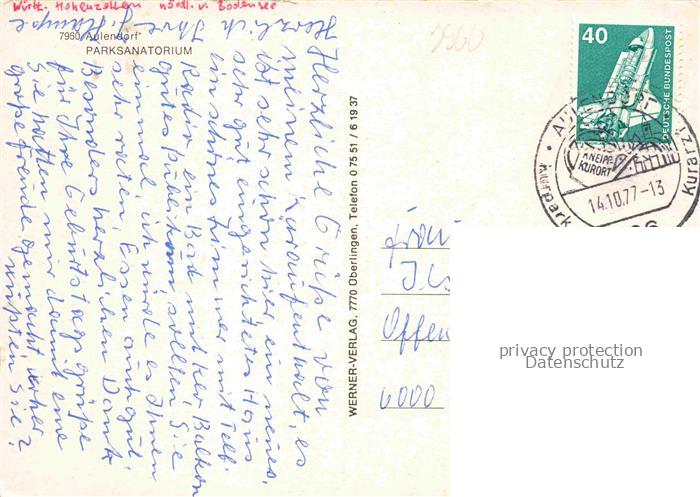 Württ. Hohenzollern nördl. v. Bodensee
7960 Aulendorf
PARKSANATORIUM
7960
Herzliche Grüße von
meinem Kuraufenthalt, es
ist sehr schön hier ein neues,
sehr gut eingerichtetes Haus
ein schönes Zimmer mit Tel.
Radio ein Bad mit Balkon
gutes Publikum sollten Sie
einmal ich würde es Ihnen
sehr raten, Essen auch gut.
Besonders herzlichen Dank
für Ihre Geburtstagsgrüße
Sie hatten mir damit eine
große Freude gemacht woher
wußten Sie?
Herzlich Ihre
WERNER-VERLAG, 7770 Überlingen, Telefon 0 75 51 / 6 19 37
40
DEUTSCHE BUNDESPOST
AULENDORF
KNEIPP-
KURORT
14.10.77-13
Kurpark
Kurzzi
Frau
Ils
Offen
6000
privacy protection
Datenschutz